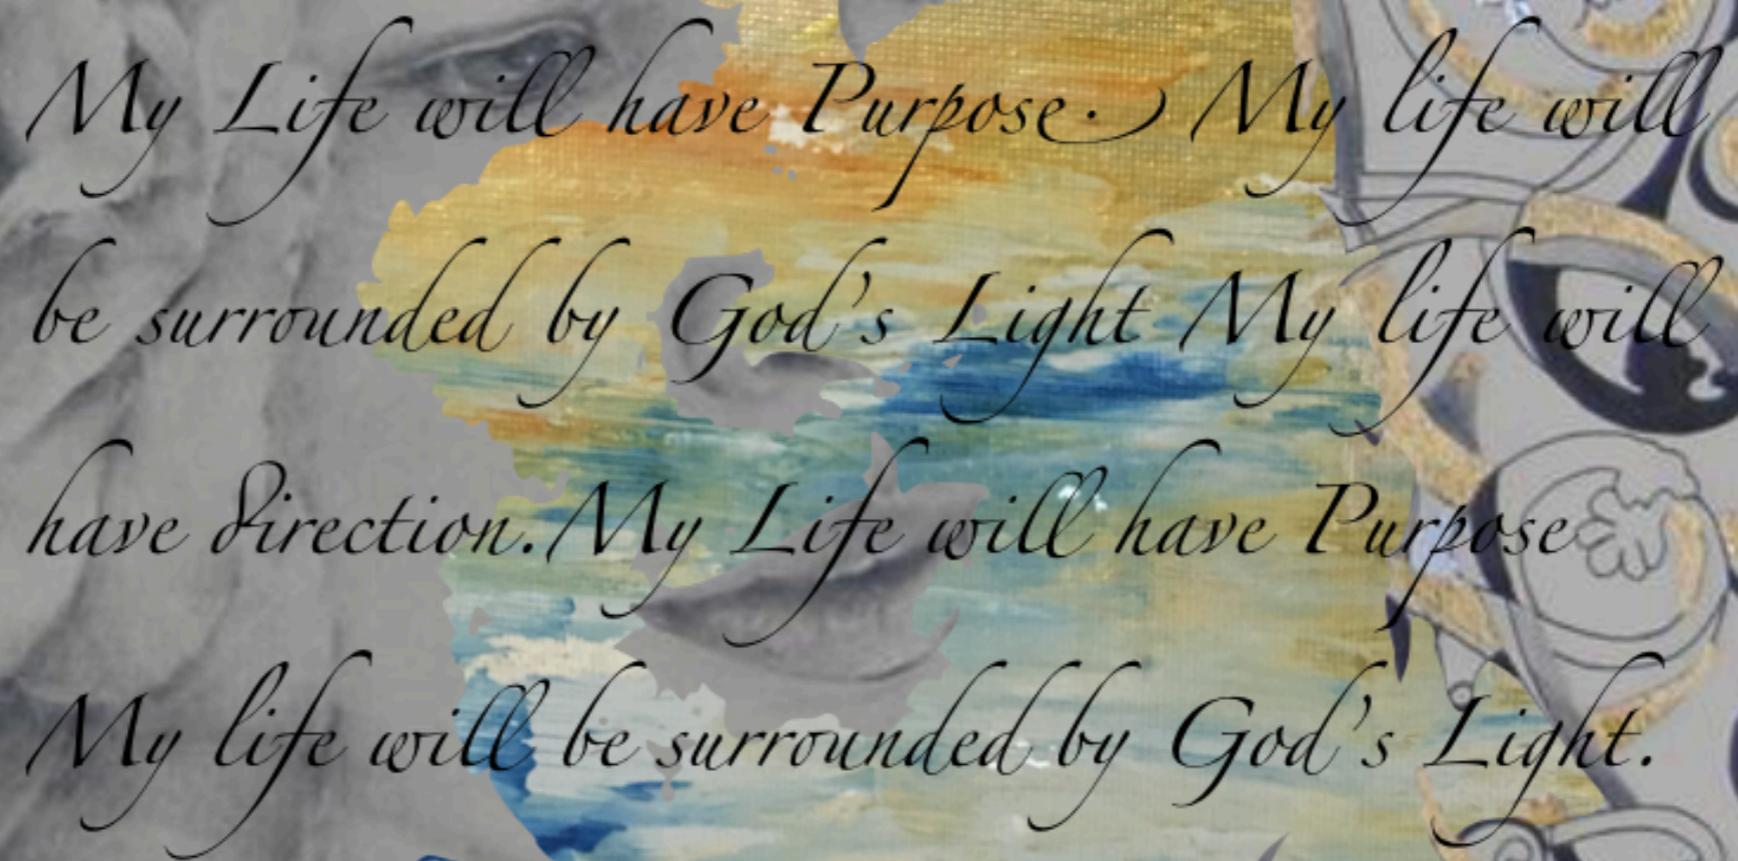 My Life will have Purpose. My life will
be surrounded by God's Light My life will
have direction. My Life will have Purpose
My life will be surrounded by God's Light.